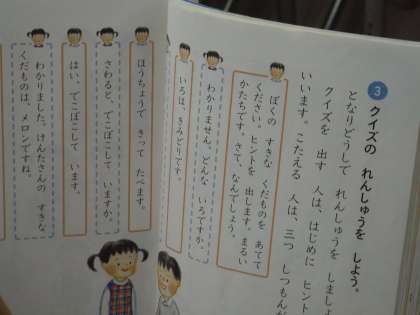 3 クイズの れんしゅうを しよう。
となりどうして れんしゅうを しましょ
クイズを 出す 人は、はじめに ヒント
いいます。こたえる 人は、三つ しつもんが
ぼくの すきな くだものを あてて
ください。ヒントを 出します。まるい
かたちです。さて、なんでしょう。
わかりません。どんな いろですか。
いろは、きみどりです。
ほうちょうで きって たべます。
さわると、でこぼこして いますか。
はい、でこぼこして います。
わかりました。けんたさんの すきな
くだものは、メロンですね。